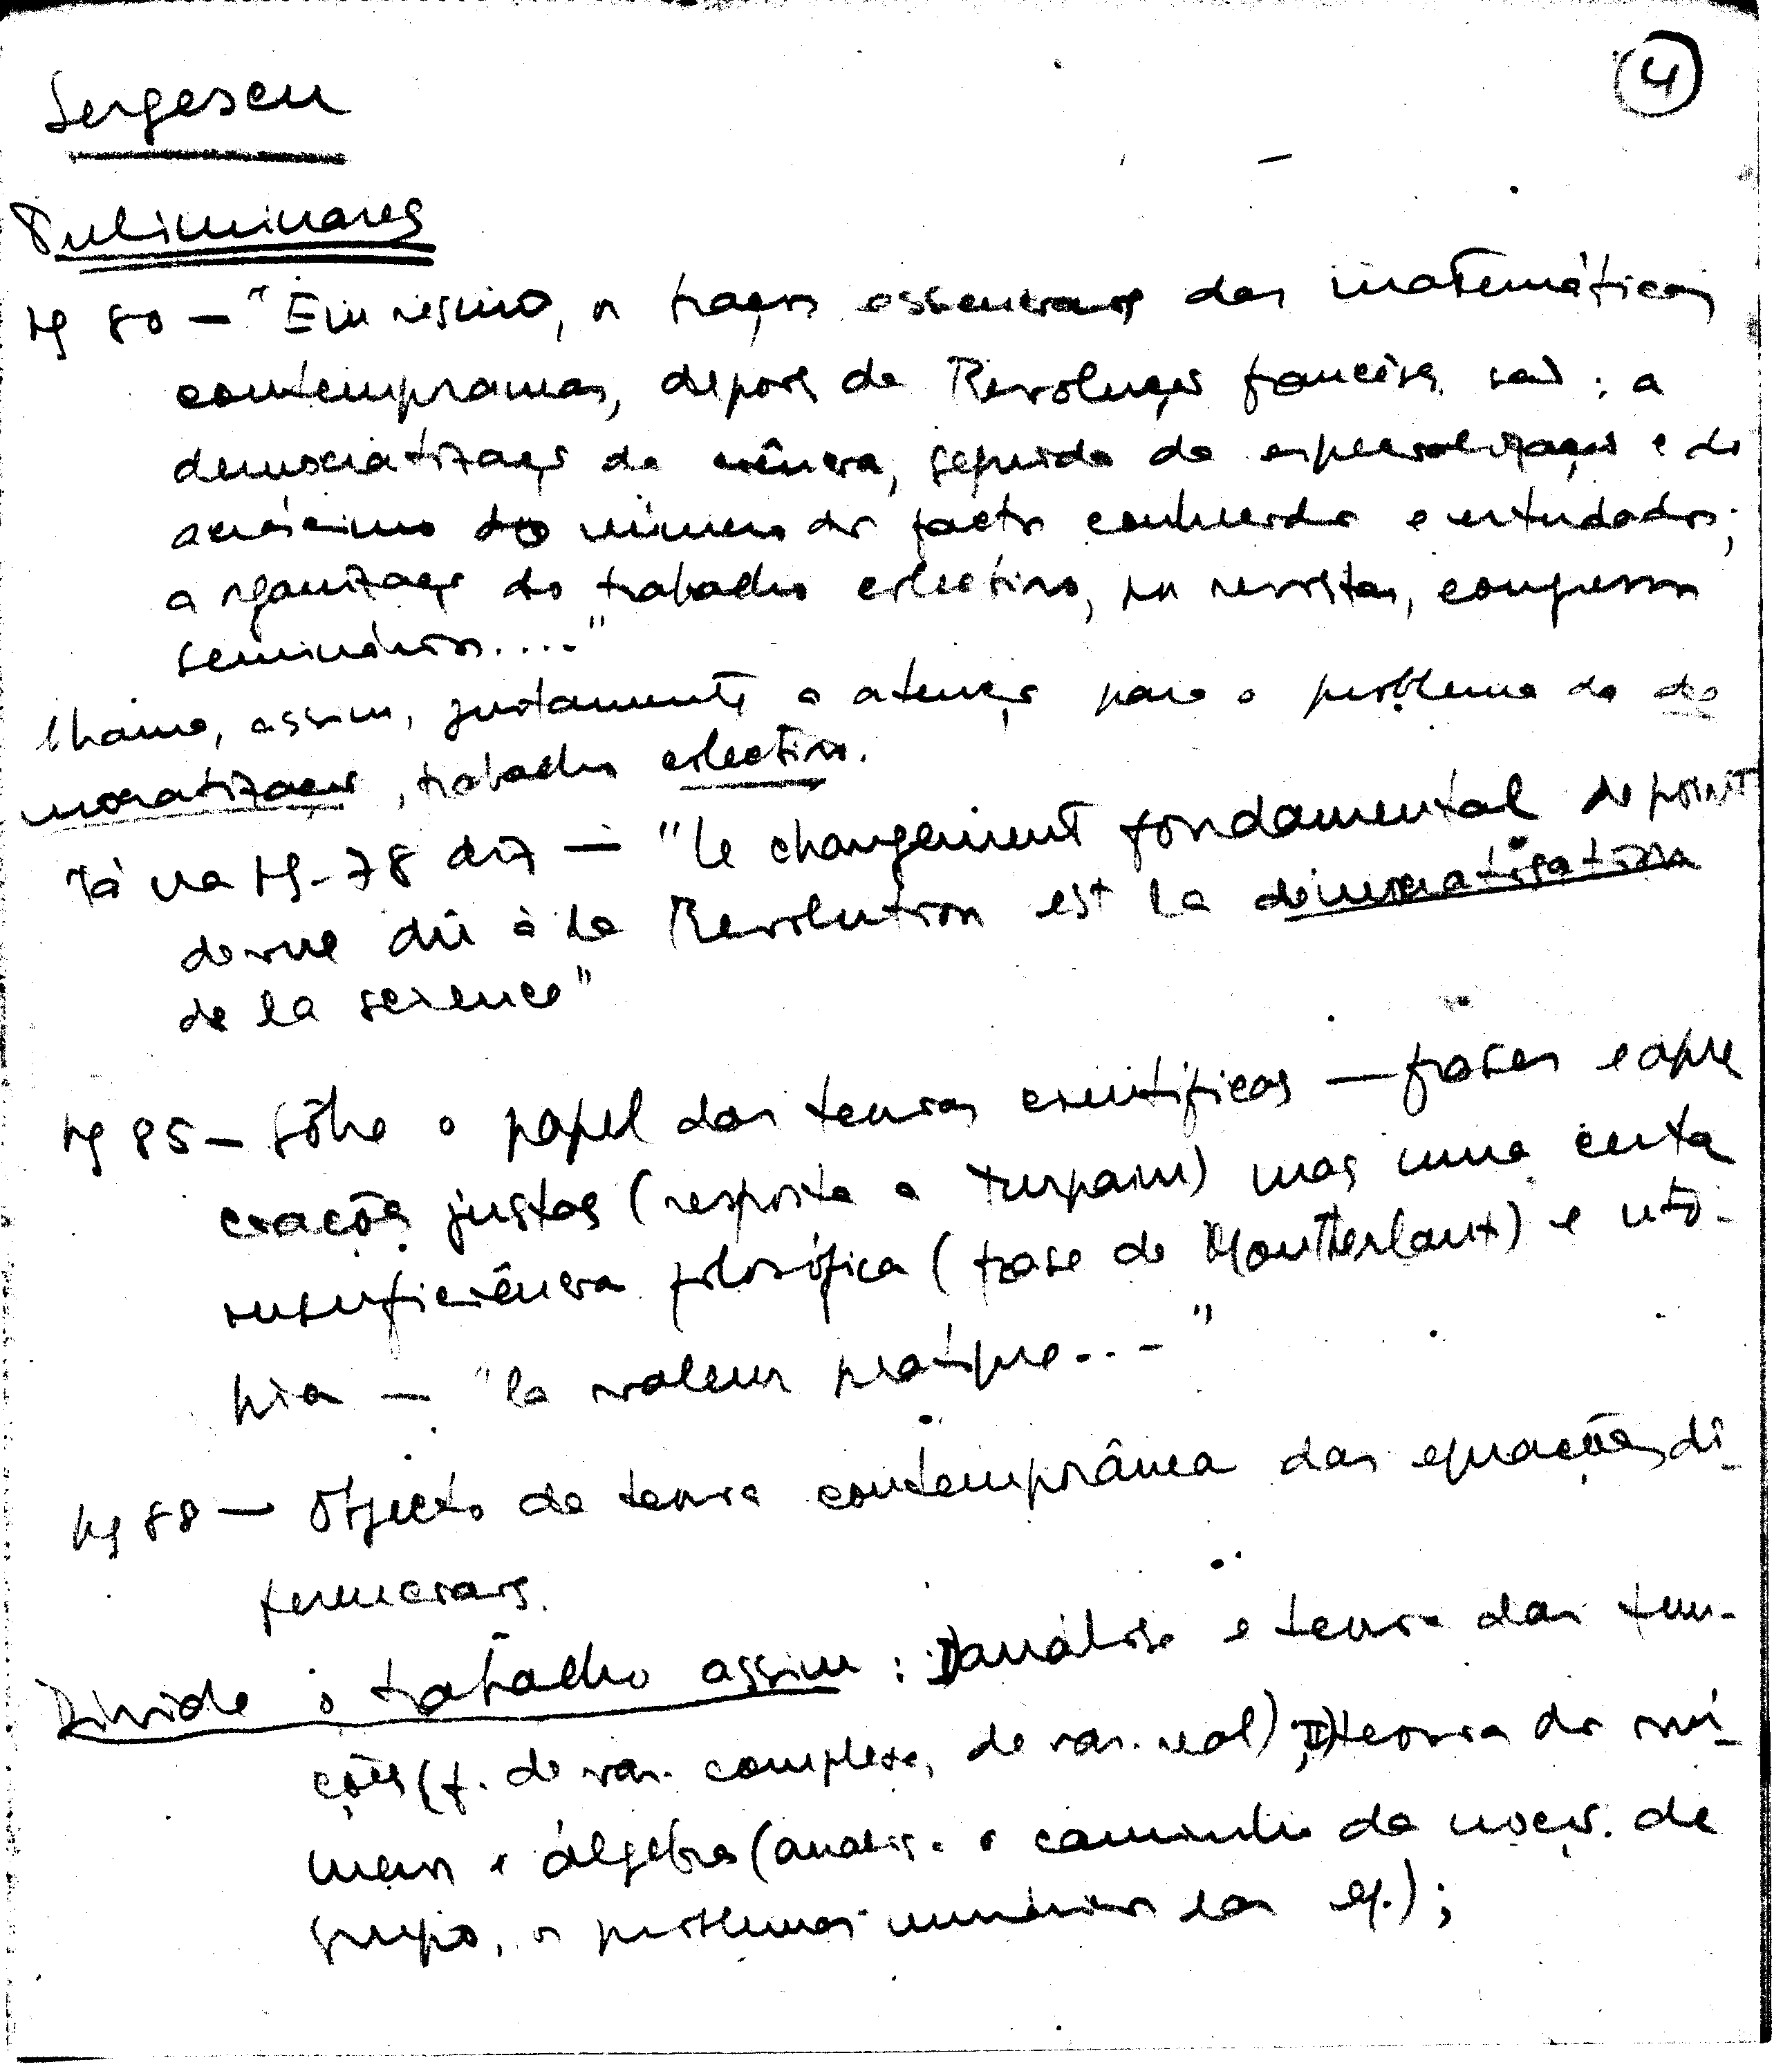 4
Sergescu
Preliminares
pg 80 — "Em resumo, os traços essenciais das matemáticas
contemporâneas, depois da Revolução francesa, são: a
democratização da ciência, seguida da especialização e do
acréscimo do número dos factos conhecidos e estudados;
a organização do trabalho colectivo, por revistas, congressos
seminários...."
Chama, assim, justamente a atenção para o problema da de
mocratização, trabalho colectivo.
Já na pg. 78 diz — "Le changement fondamental de point
de vue dû à la Révolution est la démocratisation
de la science"
pg 85 — Sôbre o papel das teorias científicas — frases e apre
ciações justas (resposta a Turpain) mas uma certa
insuficiência filosófica (frase de Montherlant) e uto-
pia — "la valeur pratique..."
pg 88 — Objecto da teoria contemporânea das equações di-
ferenciais.
Divide o trabalho assim: I) análise e teoria das fun-
ções (f. de var. complexa, de var. real); II) teoria dos nú-
meros e álgebra (análise o caminho da noção de
grupo, os problemas numéricos das eq.);